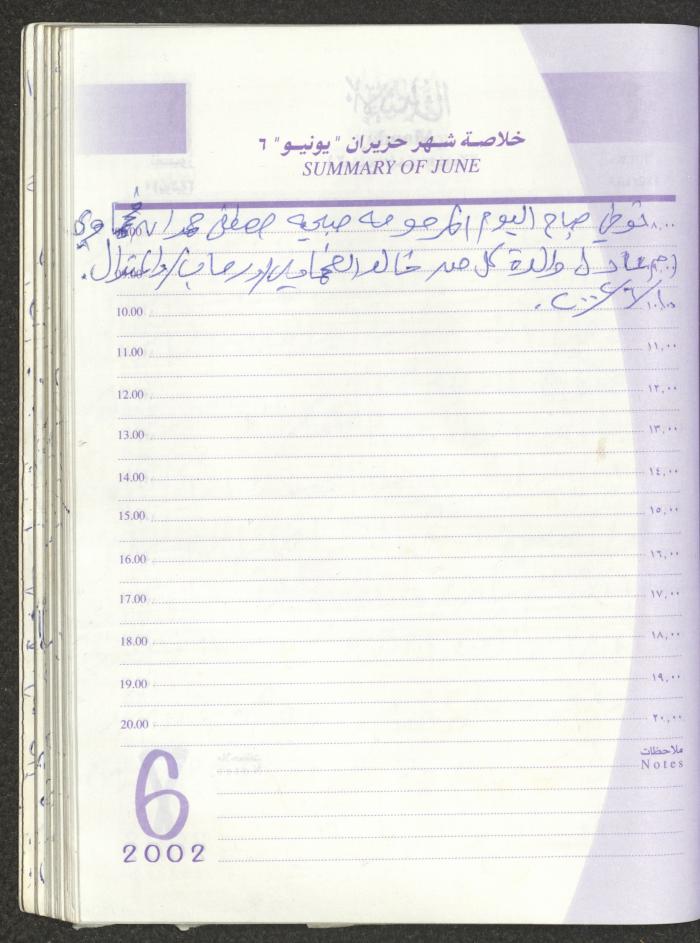 خلاصة شهر حزيران "يونيو" ٦
SUMMARY OF JUNE
توفي صباح اليوم المرحومه صبحيه مصطفى حمد
ام عادل والدة كل من خالد
٨,٠٠
9.00 ٩,٠٠
10.00 ١٠,٠٠
11.00 ١١,٠٠
12.00 ١٢,٠٠
13.00 ١٣,٠٠
14.00 ١٤,٠٠
15.00 ١٥,٠٠
16.00 ١٦,٠٠
17.00 ١٧,٠٠
18.00 ١٨,٠٠
19.00 ١٩,٠٠
20.00 ٢٠,٠٠
ملاحظات
Notes
6
2002